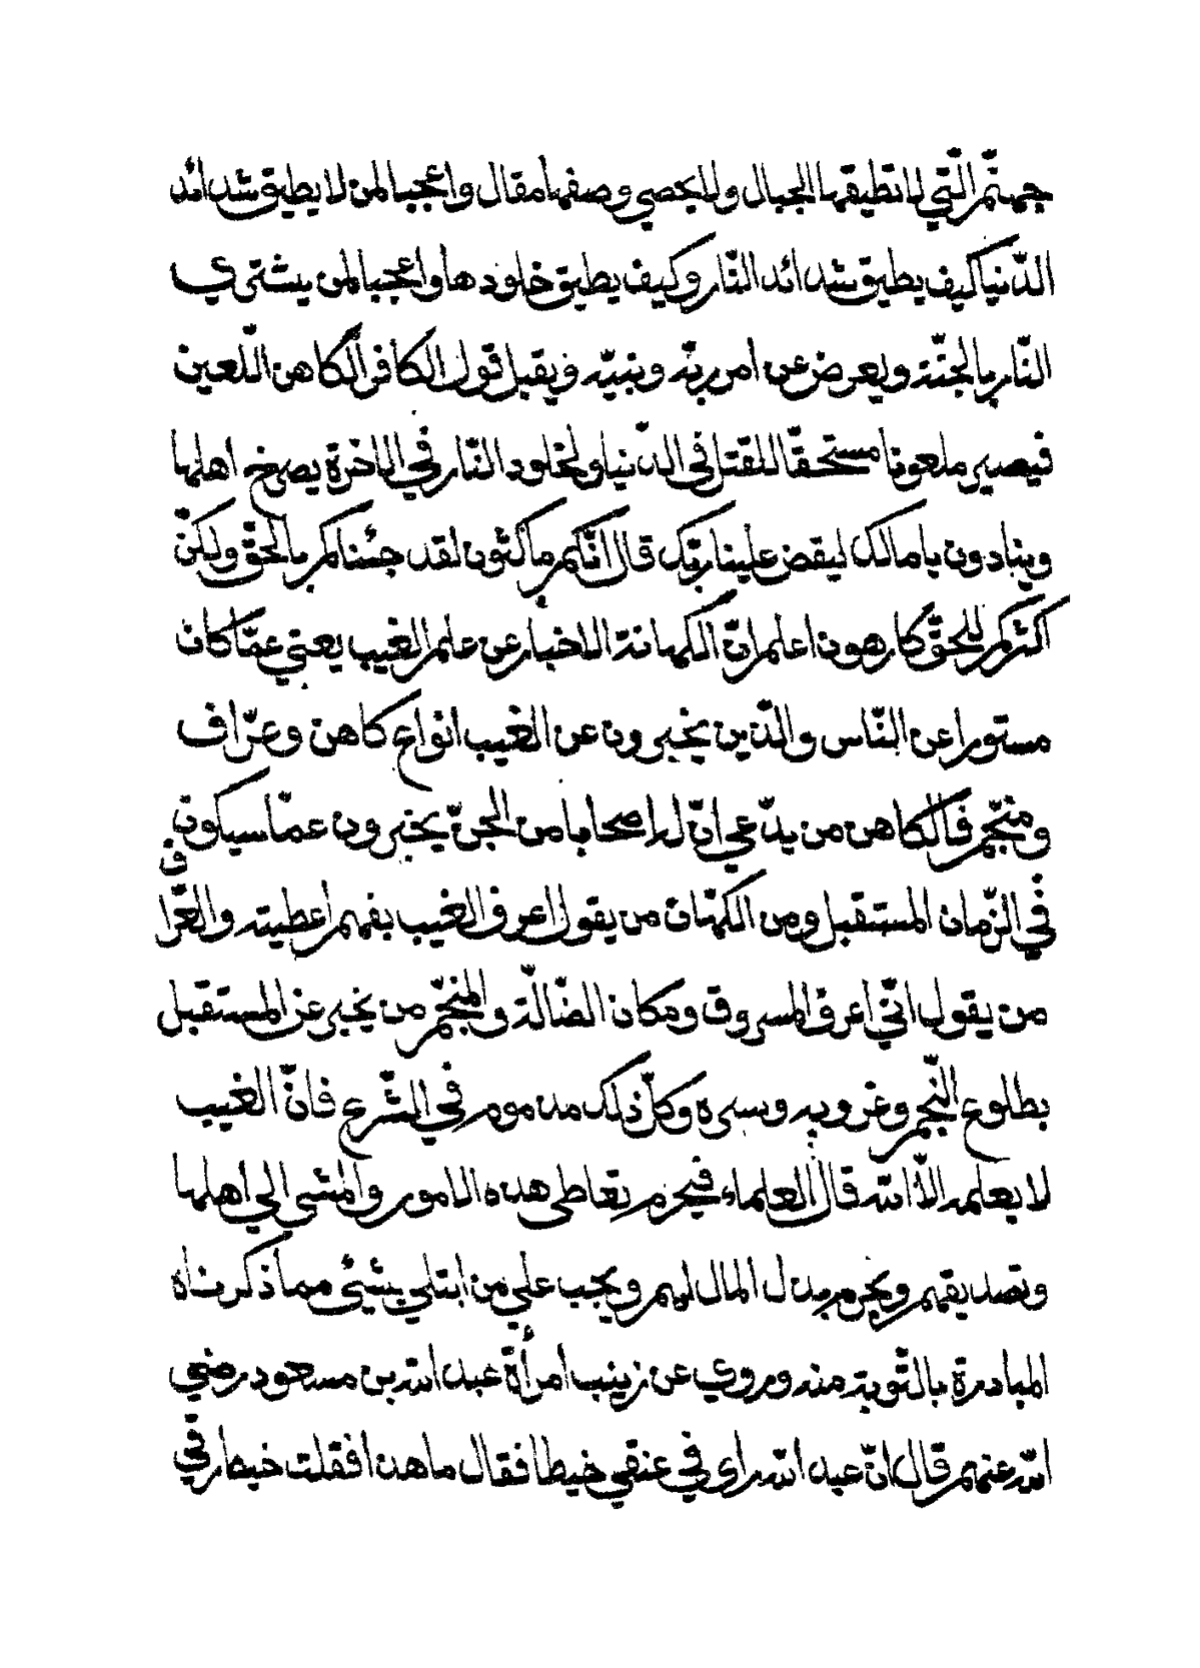 جهنّم الّتي لا تطيقها الجبال ولا يحصي وصفها مقال واعجبا لمن لا يطيق شدائد
الدّنيا كيف يطيق شدائد النّار وكيف يطيق خلودها واعجبا لمن يشتري
النّار بالجنّة ويعرض عن امر ربّه ونبيّه ويقبل قول الكافر الكاهن اللّعين
فيصير ملعونا مستحقّا للقتل في الدّنيا ولخلود النّار في الاخرة يصرخ اهلها
وينادون يا مالك ليقض علينا ربّك قال انّكم ماكثون لقد جئناكم بالحقّ ولكنّ
اكثركم للحقّ كارهون اعلم انّ الكهانة الاخبار عن علم الغيب يعني عمّا كان
مستورا عن النّاس والّذين يخبرون عن الغيب انواع كاهن وعرّاف
ومنجّم فالكاهن من يدّعي انّ له اصحابا من الجنّ يخبرون عمّا سيكون
في الزّمان المستقبل ومن الكهّان من يقول اعرف الغيب بفهم اعطيته والعرّاف
من يقول انّي اعرف المسروق ومكان الضّالّة والمنجّم من يخبر عن المستقبل
بطلوع النّجم وغروبه وسيره وكلّ ذلك مذموم في الشّرع فانّ الغيب
لا يعلمه الّا الله قال العلماء فيحرم تعاطي هذه الامور والمشي الي اهلها
وتصديقهم ويحرم بذل المال لهم ويجب علي من ابتلي بشيئ مما ذكرناه
المبادرة بالتّوبة منه وروي عن زينب امرأة عبد الله بن مسعود رضي
الله عنهم قال انّ عبد الله راي في عنقي خيطا فقال ما هذا فقلت خيط رقي